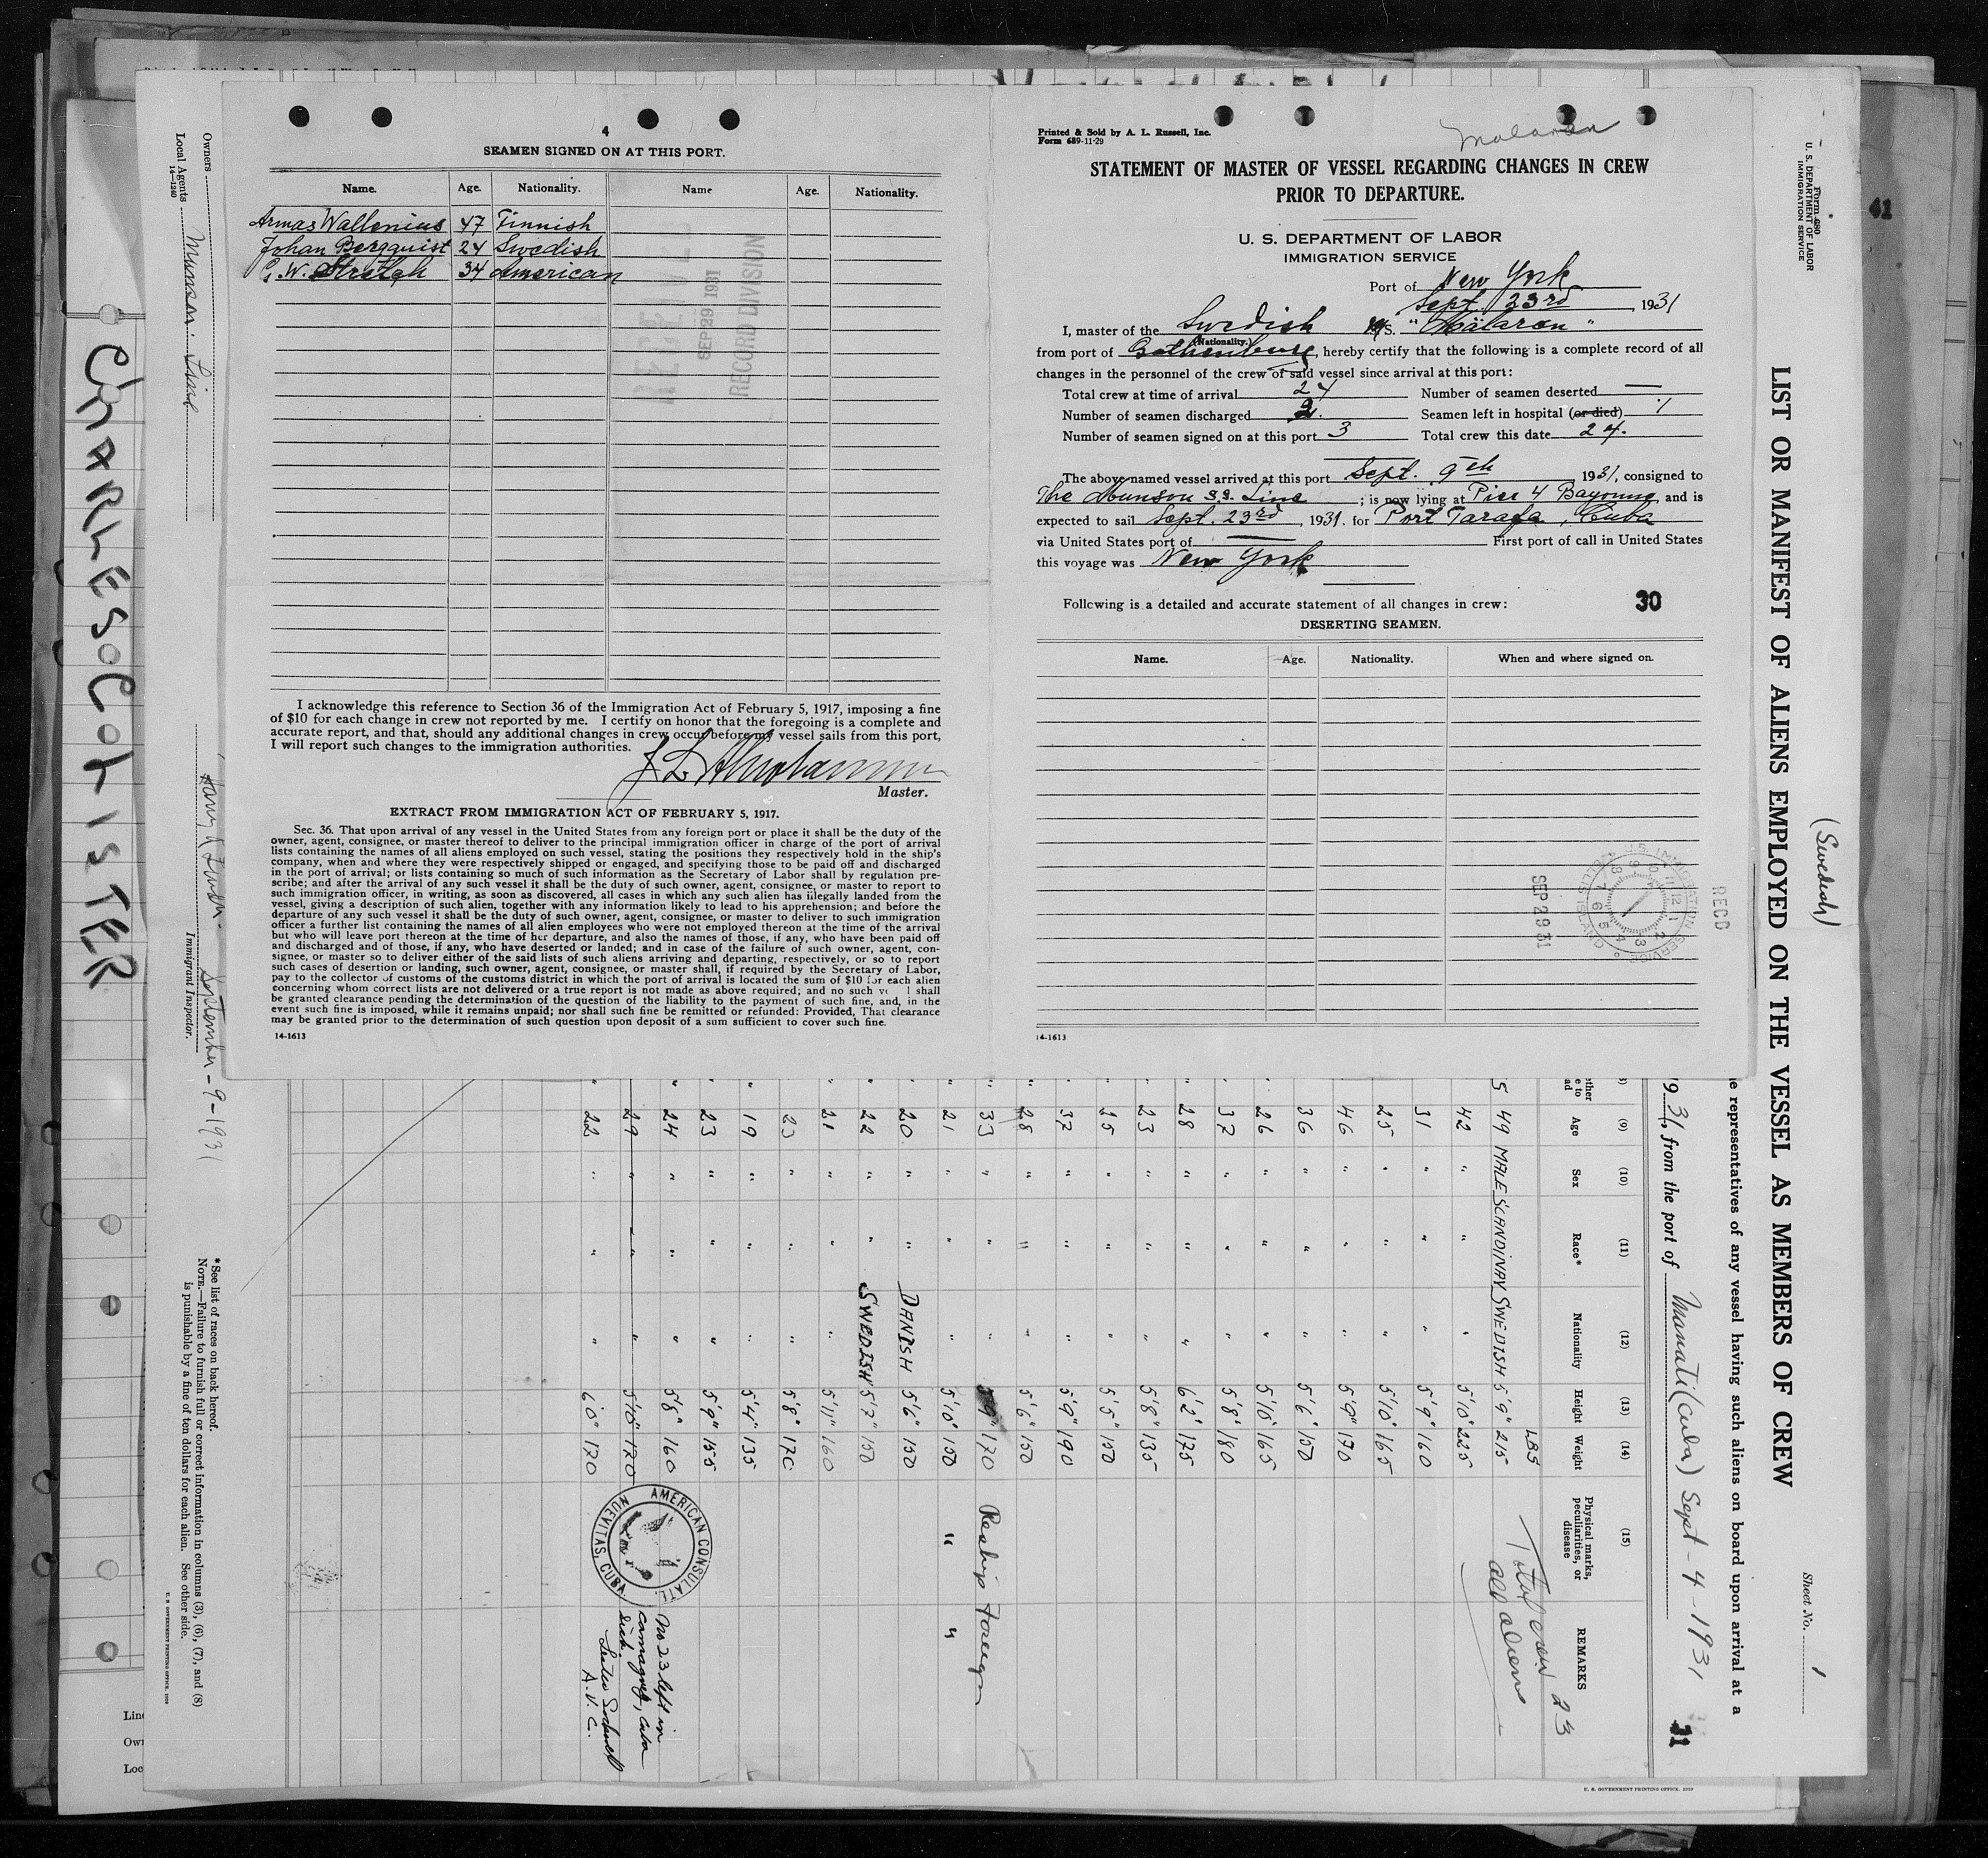 4
SEAMEN SIGNED ON AT THIS PORT.
Name. Age. Nationality. Name Age. Nationality.
Armas Wallenius 47 Finnish
Johan Bergquist 24 Swedish
G. W. 34 American
RECEIVED
SEP 29 1931
RECORD DIVISION
I acknowledge this reference to Section 36 of the Immigration Act of February 5, 1917, imposing a fine
of $10 for each change in crew not reported by me. I certify on honor that the foregoing is a complete and
accurate report, and that, should any additional changes in crew occur before my vessel sails from this port,
I will report such changes to the immigration authorities.
Master.
EXTRACT FROM IMMIGRATION ACT OF FEBRUARY 5, 1917.
Sec. 36. That upon arrival of any vessel in the United States from any foreign port or place it shall be the duty of the
owner, agent, consignee, or master thereof to deliver to the principal immigration officer in charge of the port of arrival
lists containing the names of all aliens employed on such vessel, stating the positions they respectively hold in the ship's
company, when and where they were respectively shipped or engaged, and specifying those to be paid off and discharged
in the port of arrival; or lists containing so much of such information as the Secretary of Labor shall by regulation pre-
scribe; and after the arrival of any such vessel it shall be the duty of such owner, agent, consignee, or master to report to
such immigration officer, in writing, as soon as discovered, all cases in which any such alien has illegally landed from the
vessel, giving a description of such alien, together with any information likely to lead to his apprehension; and before the
departure of any such vessel it shall be the duty of such owner, agent, consignee, or master to deliver to such immigration
officer a further list containing the names of all alien employees who were not employed thereon at the time of the arrival
but who will leave port thereon at the time of her departure, and also the names of those, if any, who have been paid off
and discharged and of those, if any, who have deserted or landed; and in case of the failure of such owner, agent, con-
signee, or master so to deliver either of the said lists of such aliens arriving and departing, respectively, or so to report
such cases of desertion or landing, such owner, agent, consignee, or master shall, if required by the Secretary of Labor,
pay to the collector of customs of the customs district in which the port of arrival is located the sum of $10 for each alien
concerning whom correct lists are not delivered or a true report is not made as above required; and no such ve l shall
be granted clearance pending the determination of the question of the liability to the payment of such fine, and, in the
event such fine is imposed, while it remains unpaid; nor shall such fine be remitted or refunded: Provided, That clearance
may be granted prior to the determination of such question upon deposit of a sum sufficient to cover such fine.
14-1613
Printed & Sold by A. L. Russell, Inc.
Form 689-11-29
Malaren
STATEMENT OF MASTER OF VESSEL REGARDING CHANGES IN CREW
PRIOR TO DEPARTURE.
U. S. DEPARTMENT OF LABOR
IMMIGRATION SERVICE
Port of New York
Sept. 23rd, 1931
I, master of the Swedish M/S. "Mälaren"
(Nationality.)
from port of Gothenburg, hereby certify that the following is a complete record of all
changes in the personnel of the crew of said vessel since arrival at this port:
Total crew at time of arrival 24 Number of seamen deserted —
Number of seamen discharged 2. Seamen left in hospital (or died) 1
Number of seamen signed on at this port 3 Total crew this date 24.
The above-named vessel arrived at this port Sept. 9th 1931, consigned to
The Munson S.S. Line; is now lying at Pier 4 Bayonne and is
expected to sail Sept. 23rd, 1931. for Port Tarafa, Cuba
via United States port of — First port of call in United States
this voyage was New York
Following is a detailed and accurate statement of all changes in crew: 30
DESERTING SEAMEN.
Name. Age. Nationality. When and where signed on.
RECD
U.S. IMMIGRATION SERVICE ELLIS ISLAND
SEP 29 31
14-1613
Form 680
U. S. DEPARTMENT OF LABOR
IMMIGRATION SERVICE
41
(Swedish)
LIST OR MANIFEST OF ALIENS EMPLOYED ON THE VESSEL AS MEMBERS OF CREW
Sheet No. 1
e representatives of any vessel having such aliens on board upon arrival at a
931, from the port of Manati (Cuba) Sept-4-1931
31
(9) (10) (11) (12) (13) (14) (15)
Age Sex Race* Nationality Height Weight Physical marks, peculiarities, or disease REMARKS
LBS
Total crew 23
all aliens
5 49 MALE SCANDINAV SWEDISH 5'9" 215
42 " " " 5'10" 225
31 " " " 5'9" 160
25 " " " 5'10" 165
46 " " " 5'9" 170
36 " " " 5'6" 150
26 " " " 5'10" 165
37 " " " 5'8" 180
28 " " " 6'2" 175
23 " " " 5'8" 135
25 " " " 5'5" 150
37 " " " 5'9" 190
28 " " " 5'6" 150
33 " " " 5'9" 170 Reship Foreign
21 " " " 5'10" 150 " "
20 " " DANISH 5'6" 150
22 " " SWEDISH 5'7" 150
21 " " " 5'11" 160
23 " " " 5'8" 170
19 " " " 5'4" 135
23 " " " 5'9" 155
24 " " " 5'8" 160
29 " " " 5'10" 170
22 " " " 6'0" 170
AMERICAN CONSULATE
NUEVITAS, CUBA
No 23 left in
Camaguey, Cuba
sick.
A.V.C.
Owners
Local Agents Munson Line
14-1240
September-9-1931
Immigrant Inspector.
*See list of races on back hereof.
NOTE.—Failure to furnish full or correct information in columns (3), (6), (7), and (8)
is punishable by a fine of ten dollars for each alien. See other side.
U. S. GOVERNMENT PRINTING OFFICE: 1929
CHARLES O COLISTER
Line
Own
Loc
U. S. GOVERNMENT PRINTING OFFICE: 1929